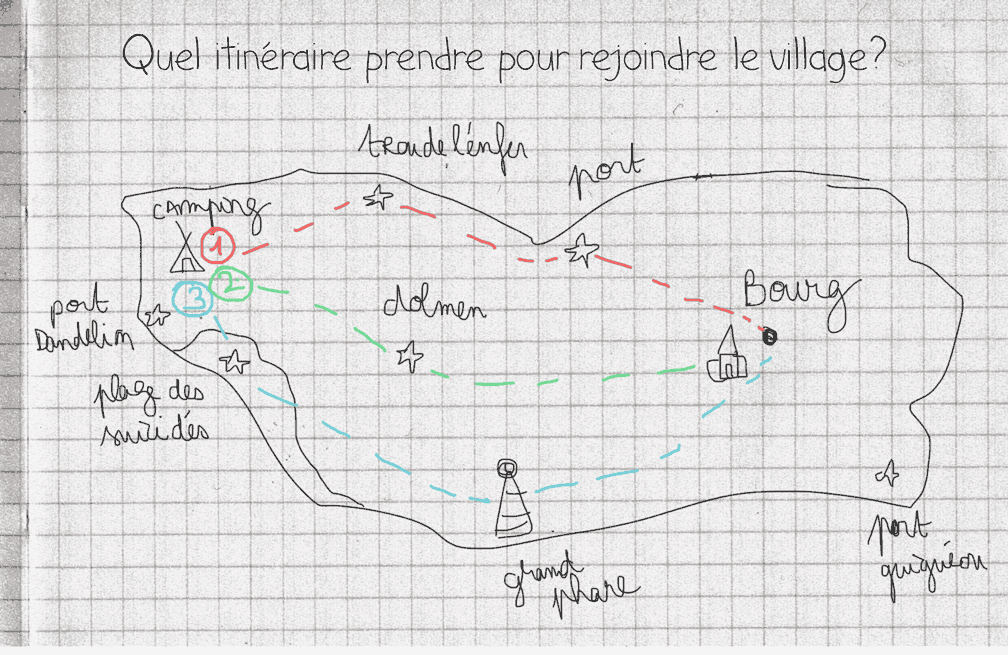 Quel itinéraire prendre pour rejoindre le village?
trou de l'enfer
port
camping
1
2
3
port
Dandelim
dolmen
Bourg
plage des
suicidés
grand
phare
port
guiguéou